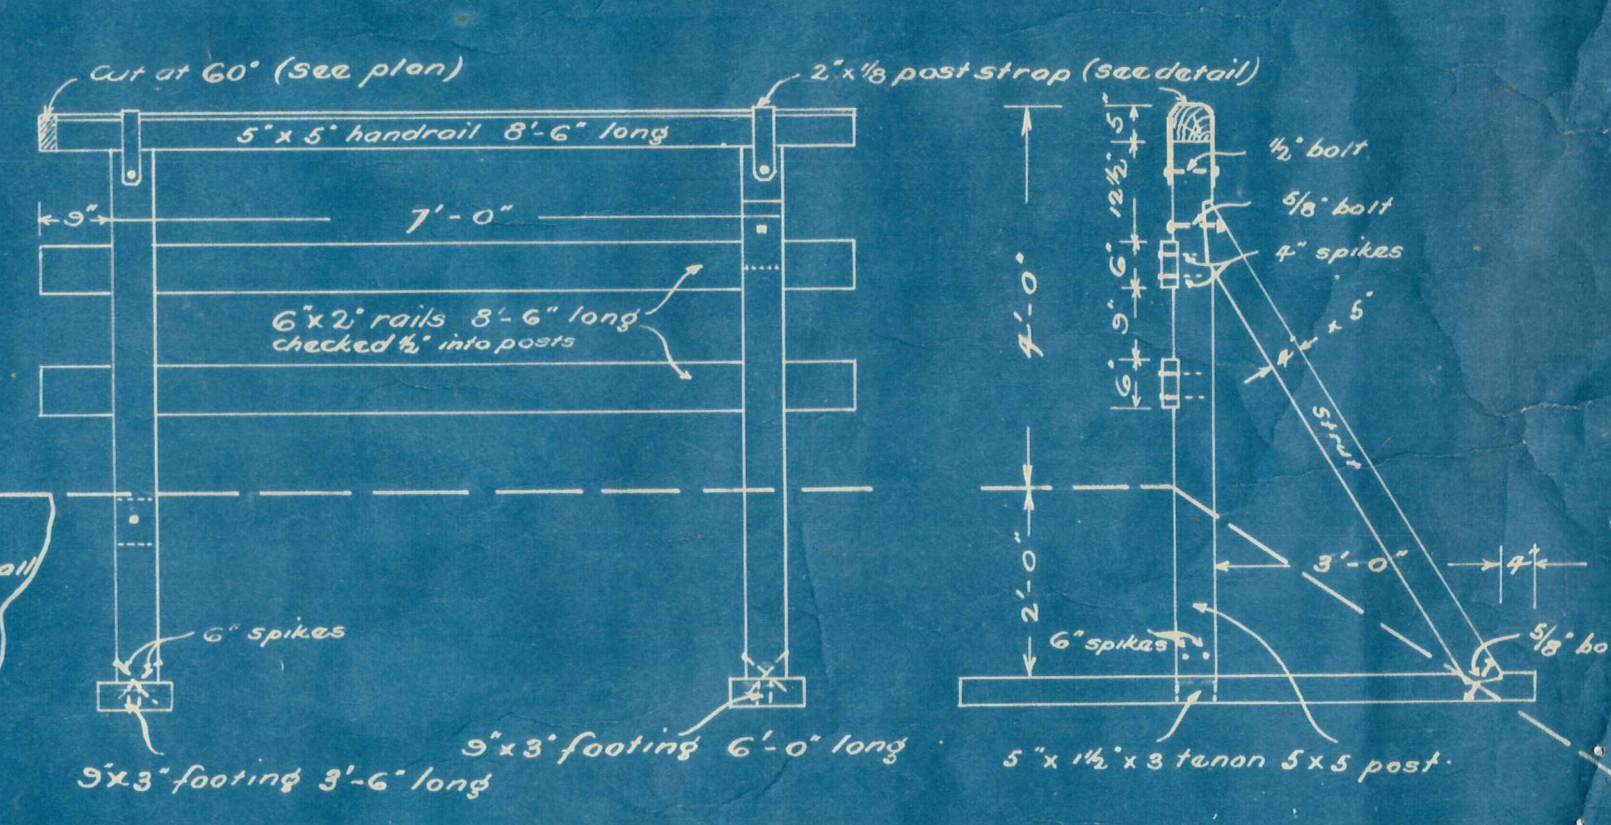 Cut at 60° (see plan)
2"x⅛ post strap (see detail)
5"x 5" handrail 8'-6" long
9"
7'-0"
6"x2" rails 8'-6" long
checked ½" into posts
6" spikes
9"x3" footing 3'-6" long
9"x3" footing 6'-0" long
all
5"
12½"
6"
9"
6"
4'-0"
2'-0"
½" bolt
5/8" bolt
4" spikes
4 x 5"
Strut
3'-0"
4"
6" spikes
5/8" bo
5"x 1½" x 3 tenon 5x5 post.